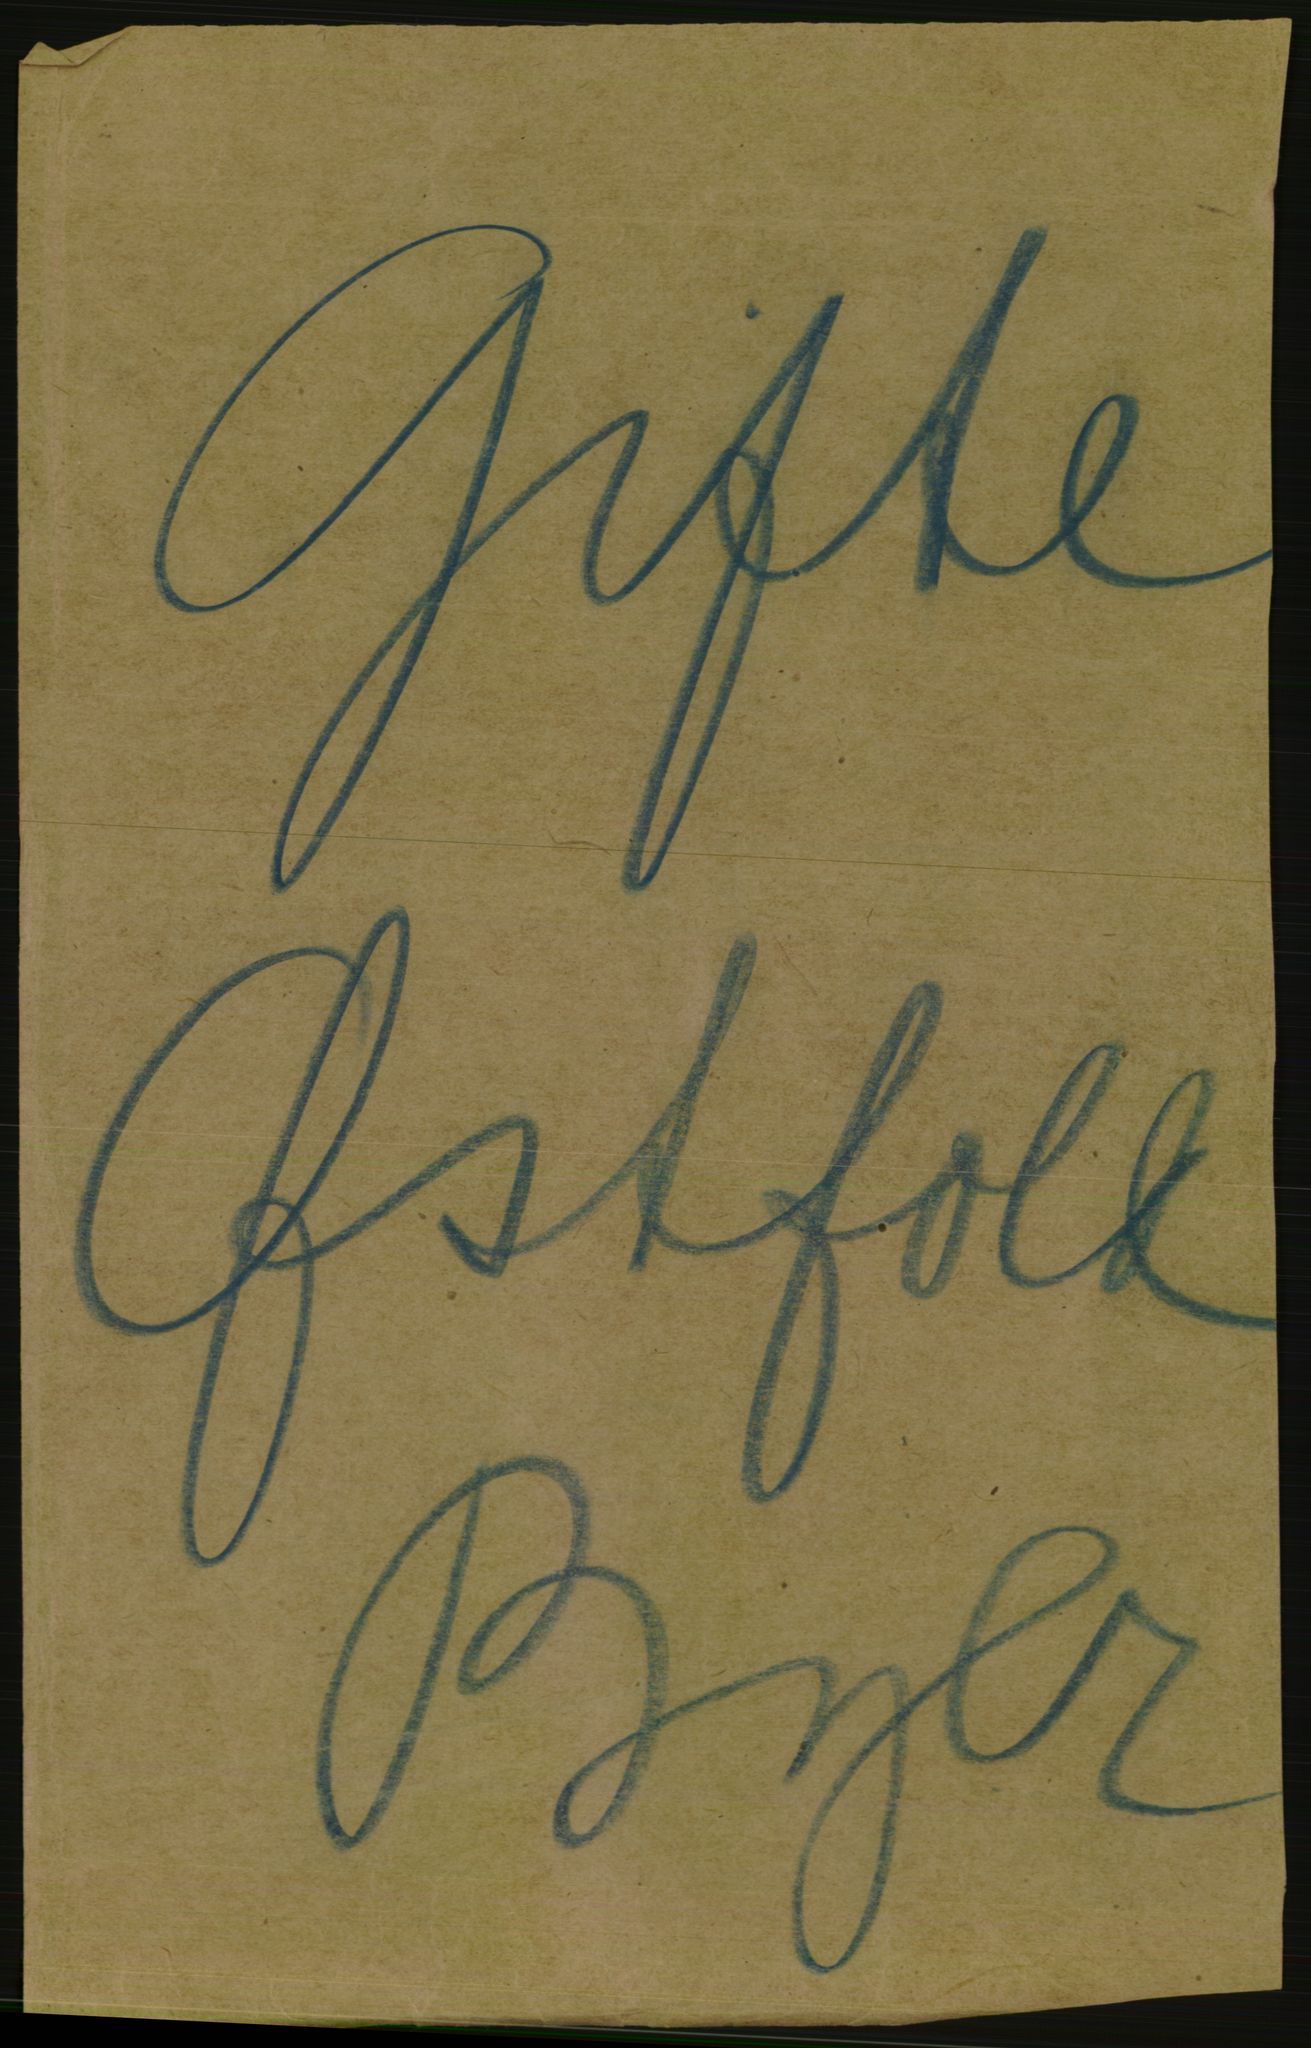 Gifte
Østfold
Byer